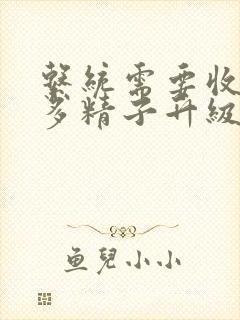 繫統需要收
多精子升級
鱼兒小小